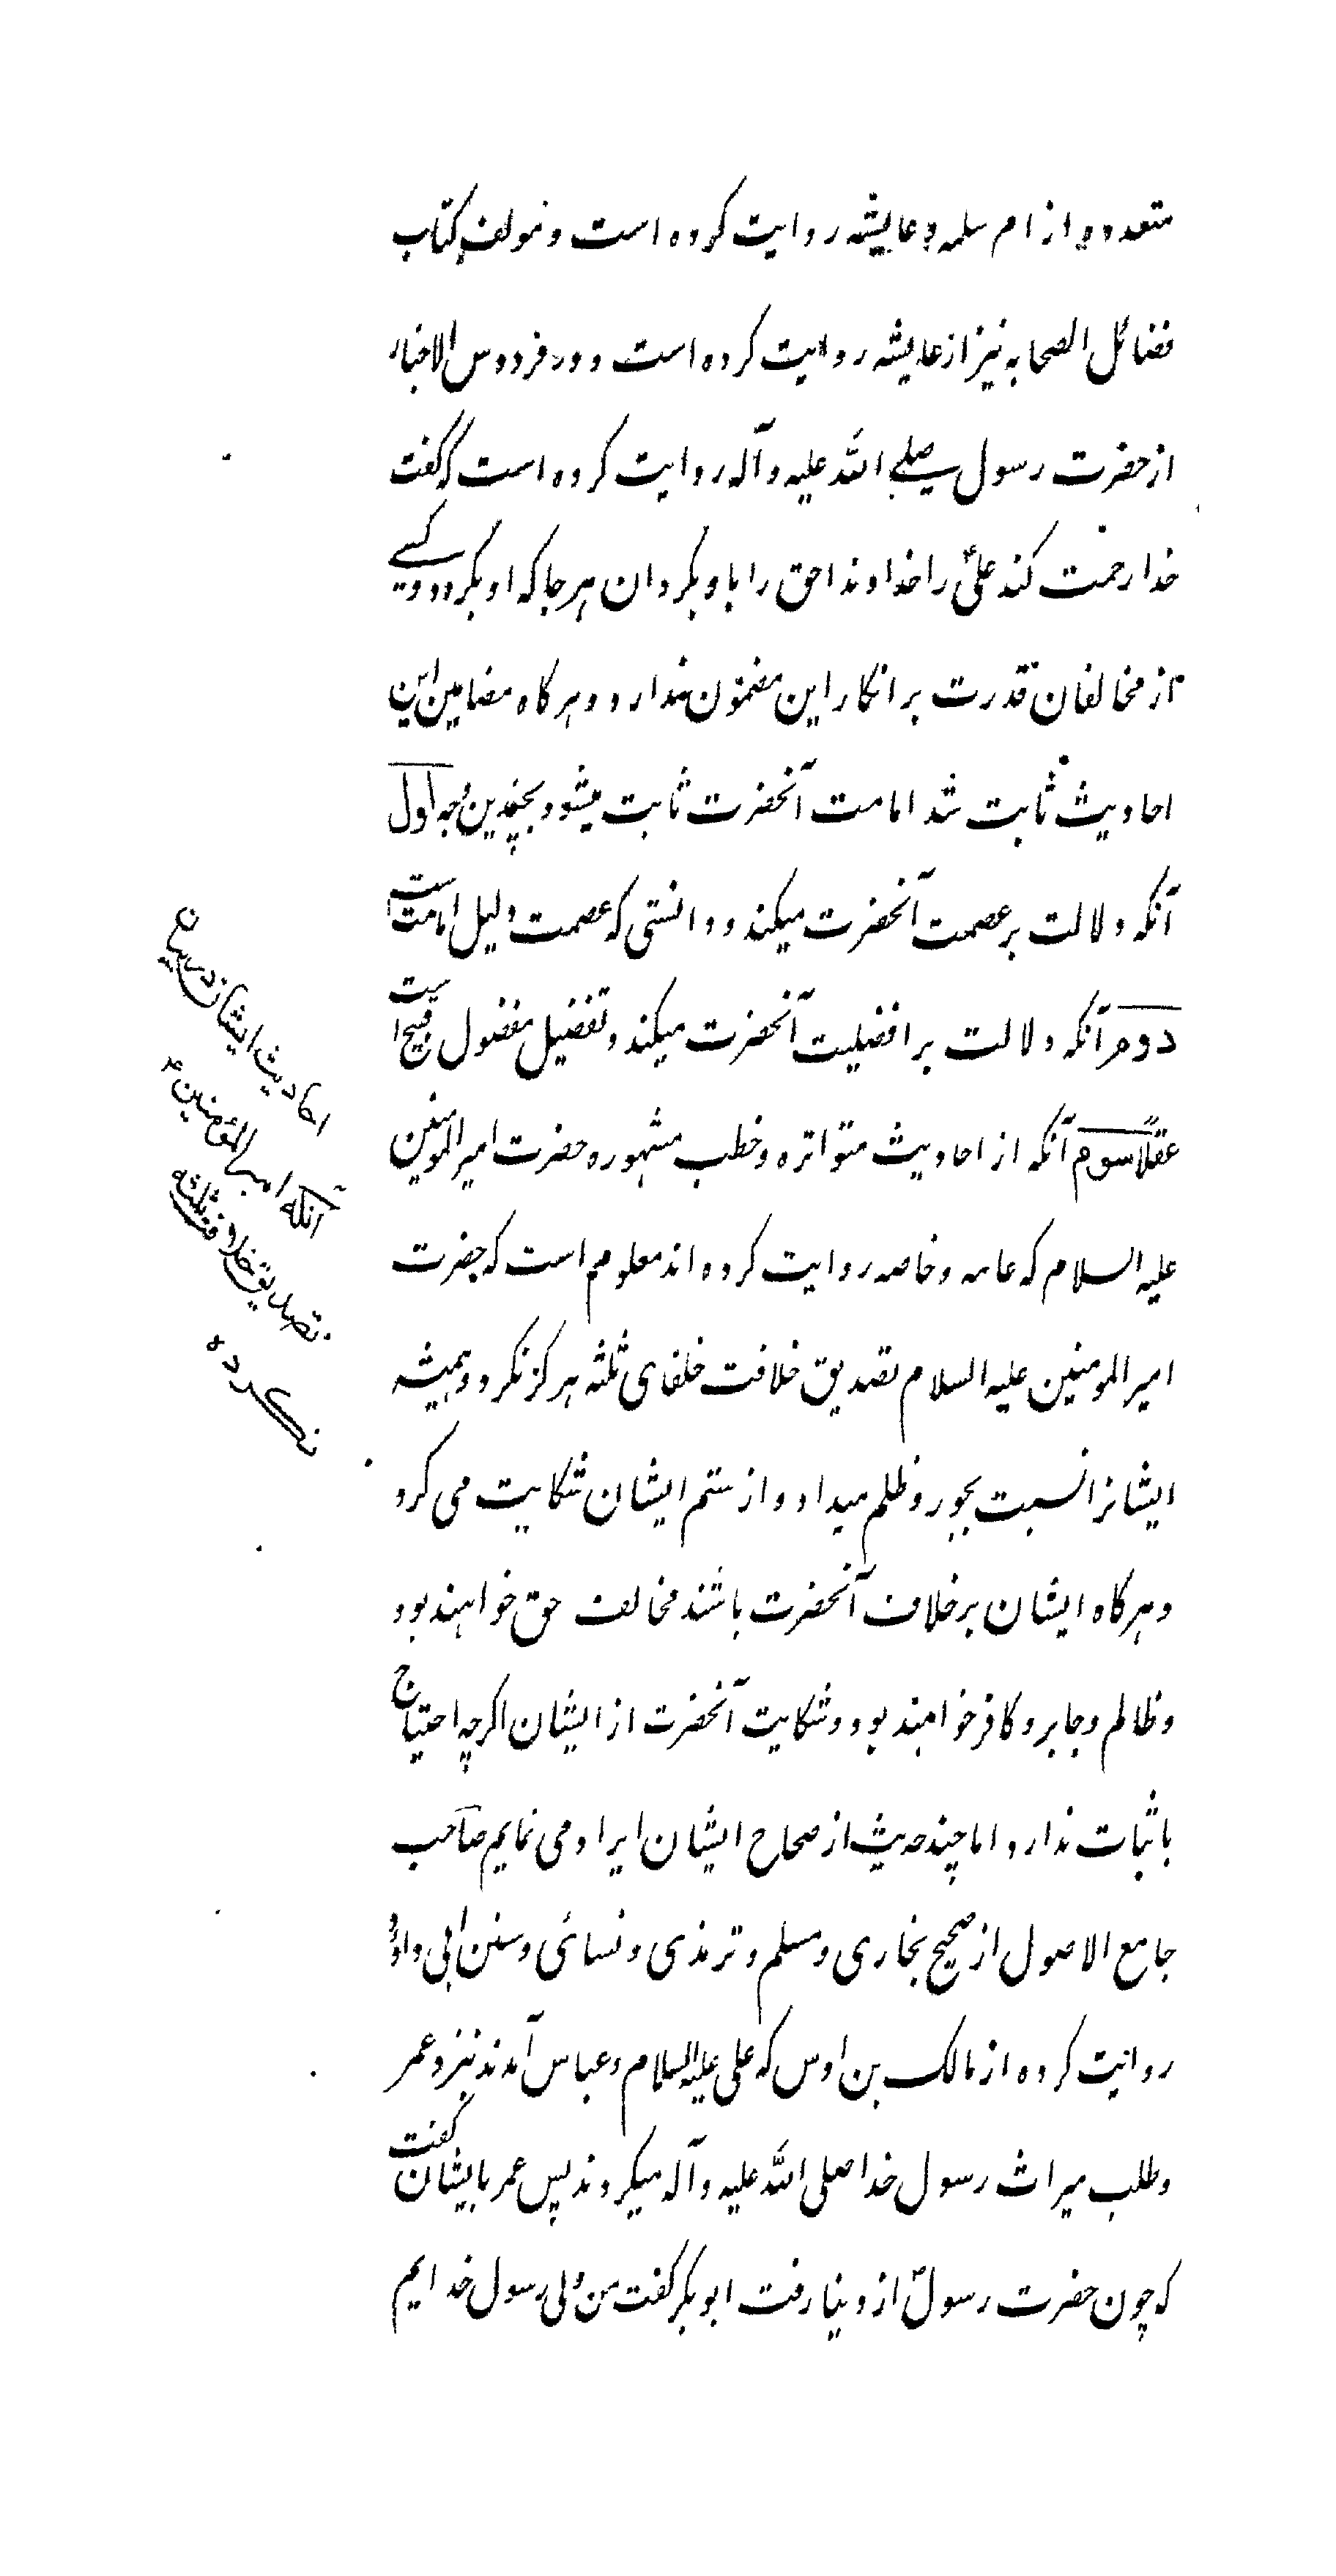 متعدده از ام سلمه و عایشه روایت کرده است و مولف کتاب
فضائل الصحابه نیز از عایشه روایت کرده است و در فردوس الاخبار
از حضرت رسول صلے الله علیه و آله روایت کرده است که گفت
خدا رحمت کند علیؑ را خداوندا حق را با و بکردان هر جا که او بکردد و کسے
از مخالفان قدرت بر انکار این مضمون ندارد و هرکاه مضامین این
احادیث ثابت شد امامت آنحضرت ثابت میشود بچندین وجه اول
آنکه دلالت بر عصمت آنحضرت میکند و دانستی که عصمت دلیل امامت است
دوم آنکه دلالت بر افضلیت آنحضرت میکند و تفضیل مفضول قبیح است
عقلاً سوم آنکه از احادیث متواتره و خطب مشهوره حضرت امیر المومنین
علیه السلام که عامه و خاصه روایت کرده اند معلوم است که حضرت
امیر المومنین علیه السلام تصدیق خلافت خلفای ثلثه هرکز نکرد و همیشه
ایشانرا نسبت بجور و ظلم میداد و از ستم ایشان شکایت می کرد
و هرکاه ایشان بر خلاف آنحضرت باشند مخالف حق خواهند بود
و ظالم و جابر و کافر خواهند بود و شکایت آنحضرت از ایشان اکرچه احتیاج
باثبات ندارد اما چند حدیث از صحاح ایشان ایراد می نمایم صاحب
جامع الاصول از صحیح بخاری و مسلم و ترمذی و نسائی و سنن ابی داؤد
روایت کرده از مالک بن اوس که علی علیه السلام و عباس آمدند بنزد عمر
و طلب میراث رسول خدا صلی الله علیه و آله میکردند پس عمر بایشان گفت
که چون حضرت رسولؐ از دنیا رفت ابوبکر کفت من ولی رسول خدایم
احادیث ایشان در بیان
آنکه امیر المؤمنین ع
تصدیق خلافت ثلثه
نکرده